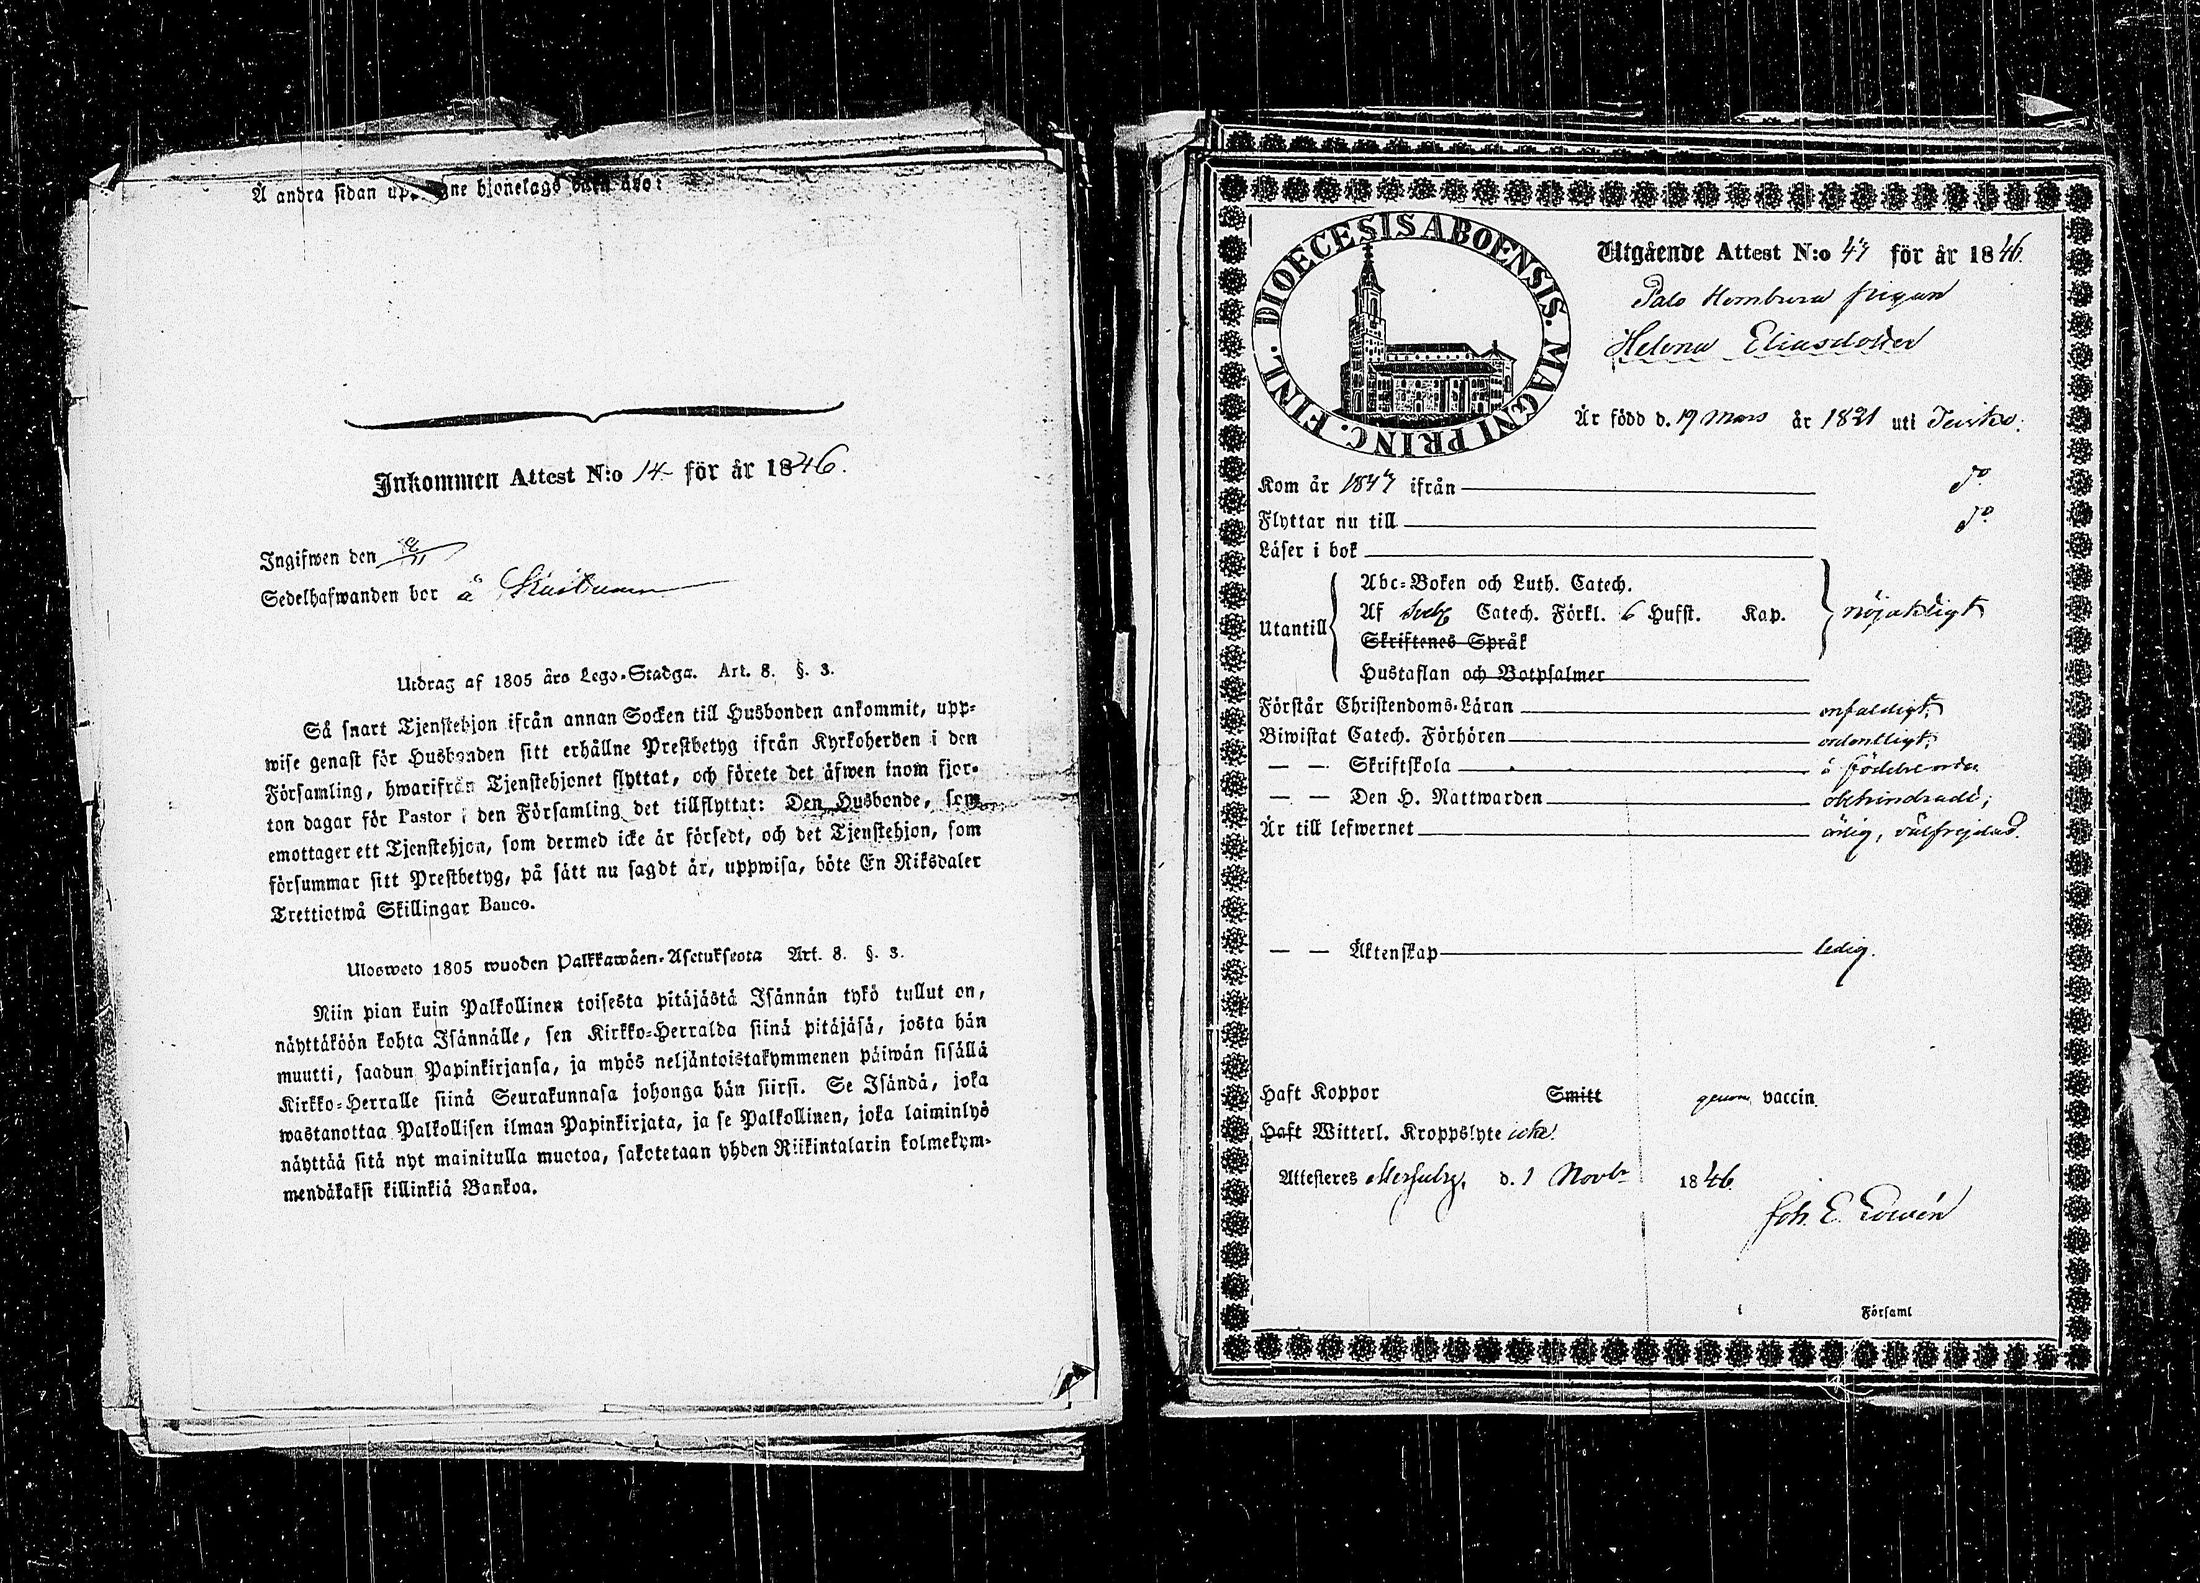 Å andra sidan
Inkommen Attest N:o 14 för år 1846.
Ingifwen den
Sedelhafwanden bor å
Utdrag af 1805 års Lego-Stadga. Art. 8. §. 3.
Så snart Tjenstehjon ifrån annan Socken till Husbonden ankommit, upp-
wise genast för Husbonden sitt erhållne Prestbetyg ifrån Kyrkoherden i den
Församling, hwarifrån Tjenstehjonet flyttat, och förete det äfwen inom fjor-
ton dagar för Pastor i den Församling det tillflyttat: Den Husbonde, som
emottager ett Tjenstehjon, som dermed icke är försedt, och det Tjenstehjon, som
försummar sitt Prestbetyg, på sätt nu sagdt är, uppwisa, böte En Riksdaler
Trettiotwå Skillingar Banco.
Ulosweto 1805 wuoden Palkkawäen-Asetuksesta Art. 8. §. 3.
Niin pian kuin Palkollinen toisesta pitäjästä Isännän tykö tullut on,
näyttäköön kohta Isännälle, sen Kirkko-Herralda siinä pitäjäsä, josta hän
muutti, saadun Papinkirjansa, ja myös neljäntoistakymmenen päiwän sisällä
Kirkko-Herralle siinä Seurakunnasa johonga hän siirsi. Se Isändä, joka
wastanottaa Palkollisen ilman Papinkirjata, ja se Palkollinen, joka laiminlyö
näyttää sitä nyt mainitulla muotoa, sakotetaan yhden Riikintalarin kolmekym-
mendäkaksi killinkiä Bankoa.
DIOECESIS ABOENSIS. MAGNI PRINC. FINL.
Utgående Attest N:o 47 för år 1846.
Palo Hembura pigan
Helena Eliasdotter
Är född d. 19 Mars år 1821 uti Teisko.
Kom år 1847 ifrån do
Flyttar nu till do
Läser i bok
Abc-Boken och Luth. Catech.
Utantill Af Sveb. Catech. Förkl. 6 Hufst. Kap. nöjaktigt
Skriftenes Språk
Hustaflan och Botpsalmer
Förstår Christendoms-Läran enfaldigt;
Biwistat Catech. Förhören ordentligt;
— — Skriftskola å födelseorten
— — Den H. Nattwarden obehindrad;
Är till lefwernet ärlig, välfrejdad.
— — Äktenskap ledig.
Haft Koppor Smitt genom vaccin.
Haft Witterl. Kroppslyte icke.
Attesteres Messuby, d. 1 Novbr 1846.
Joh. E.
i Församl